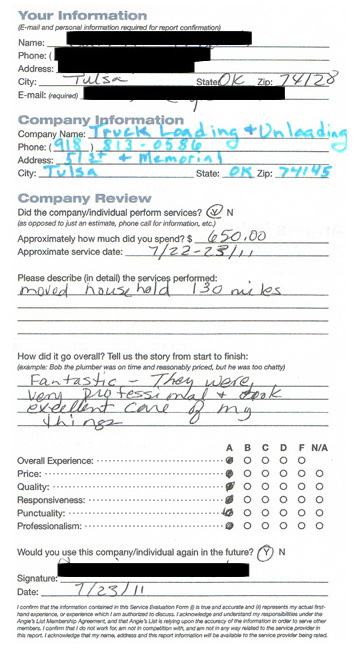 Your Information
(E-mail and personal information required for report confirmation)
Name:
Phone: (
Address:
City: Tulsa State: OK Zip: 74128
E-mail: (required)
Company Information
Company Name: Truck Loading & Unloading
Phone: (918) 813-0586
Address: 51st & Memorial
City: Tulsa State: OK Zip: 74145
Company Review
Did the company/individual perform services? Y N
(as opposed to just an estimate, phone call for information, etc.)
Approximately how much did you spend? $ 650.00
Approximate service date: 7/22-23/11
Please describe (in detail) the services performed:
moved household 130 miles
How did it go overall? Tell us the story from start to finish:
(example: Bob the plumber was on time and reasonably priced, but he was too chatty)
Fantastic - They were
very professional & took
excellent care of my
things
A B C D F N/A
Overall Experience:
Price:
Quality:
Responsiveness:
Punctuality:
Professionalism:
Would you use this company/individual again in the future? Y N
Signature:
Date: 7/23/11
I confirm that the information contained in this Service Evaluation Form (i) is true and accurate and (ii) represents my actual first-
hand experience, or experience which I am authorized to discuss. I acknowledge and understand my responsibilities under the
Angie's List Membership Agreement, and that Angie's List is relying upon the accuracy of the information in order to serve other
members. I confirm that I do not work for, am not in competition with, and am not in any way related to the service provider in
this report. I acknowledge that my name, address and this report information will be available to the service provider being rated.